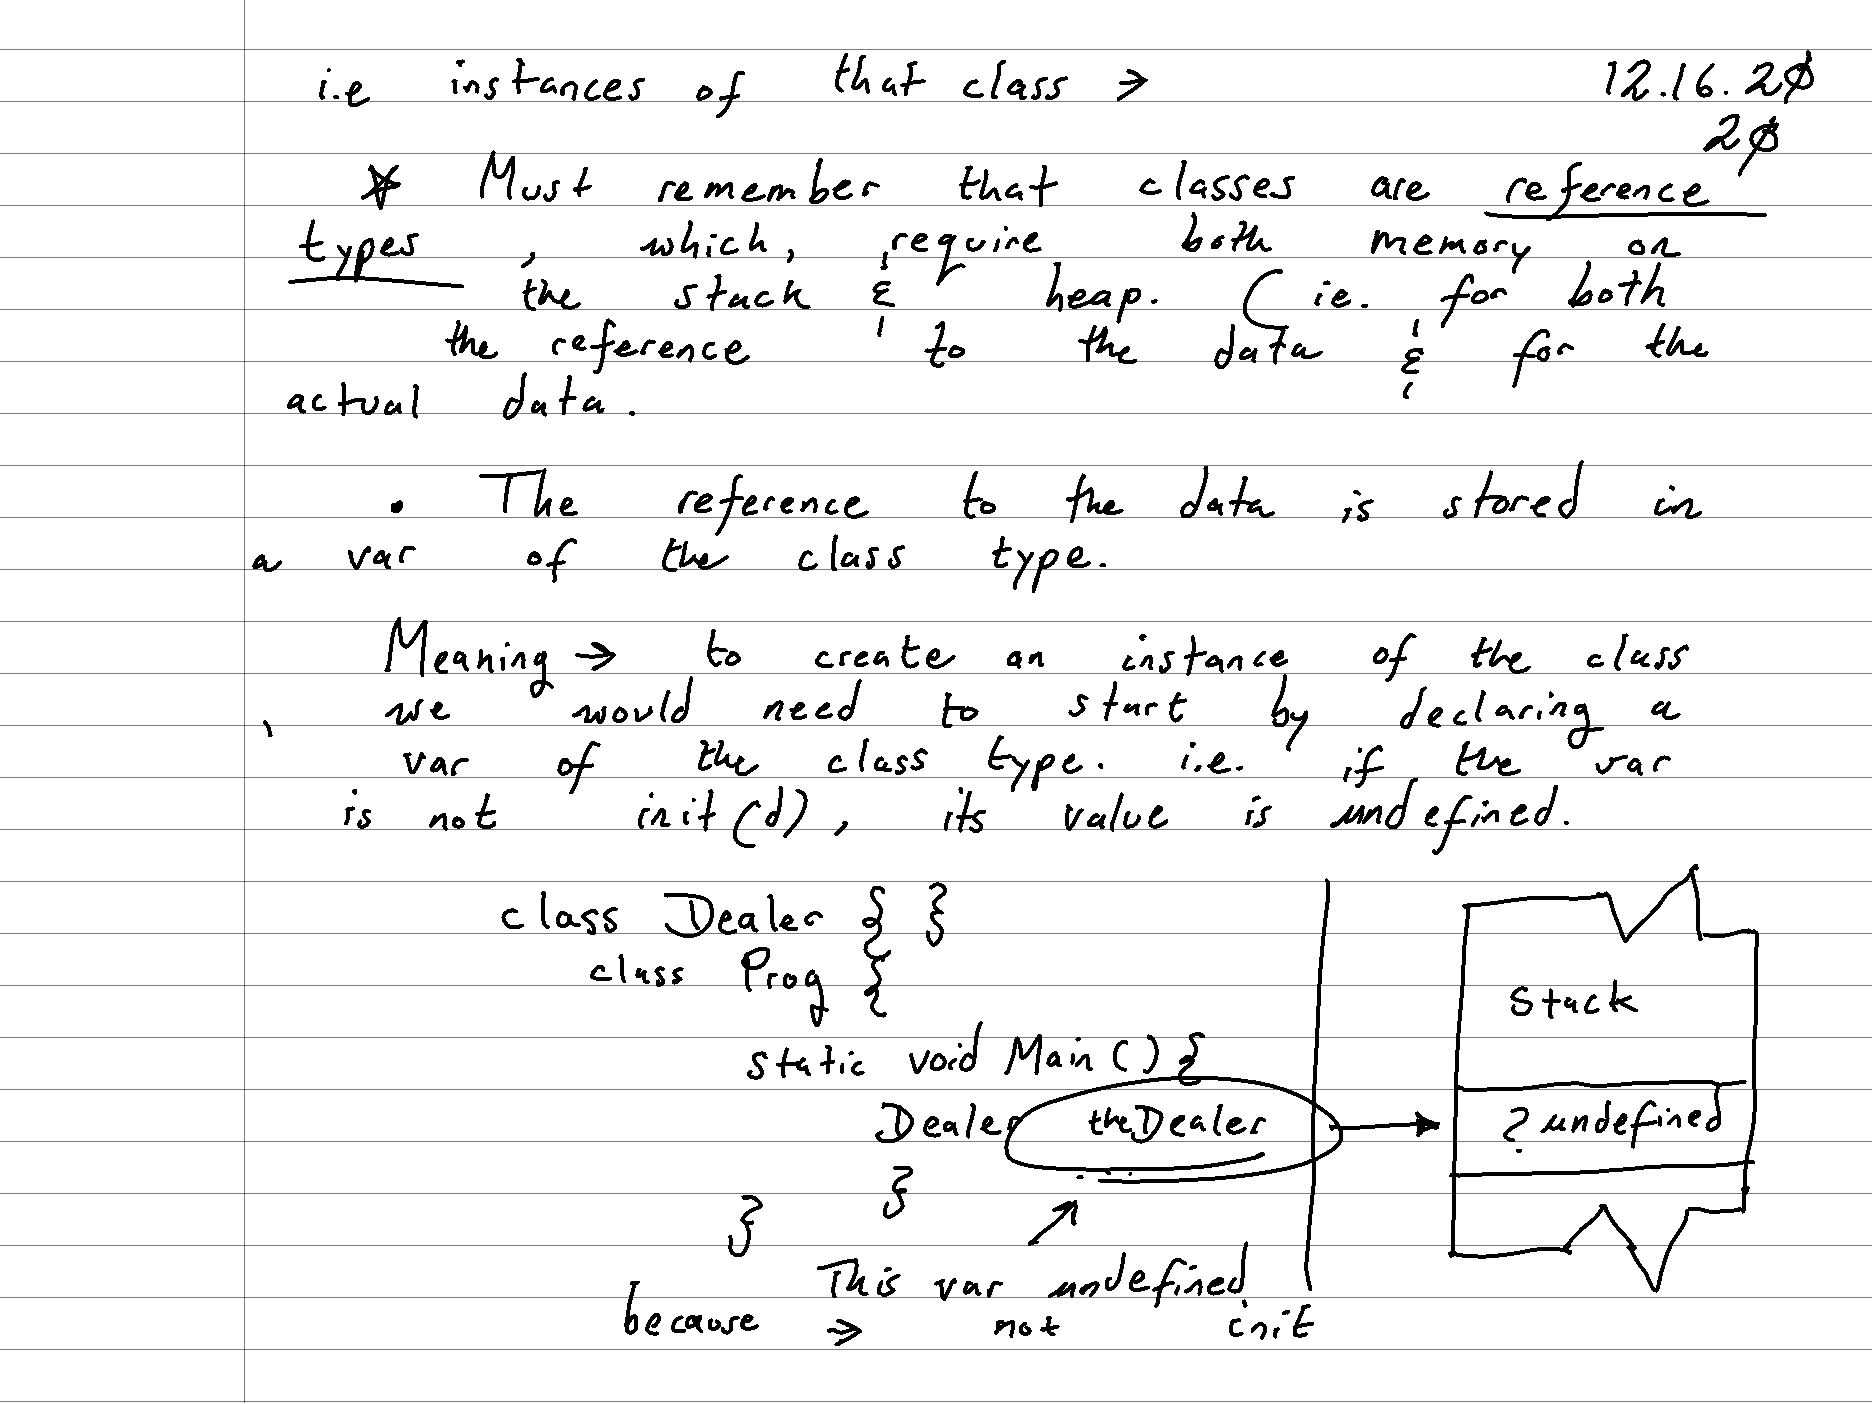 i.e instances of that class → 12.16.20
20
* Must remember that classes are reference
types, which, require both memory on
the stack & heap. (ie. for both
the reference to the data & for the
actual data.
• The reference to the data is stored in
a var of the class type.
Meaning → to create an instance of the class
we would need to start by declaring a
var of the class type. i.e. if the var
is not init(d), its value is undefined.
class Dealer { }
class Prog {
static void Main () {
Dealer theDealer
}
}
This var undefined
because → not init
Stack
? undefined